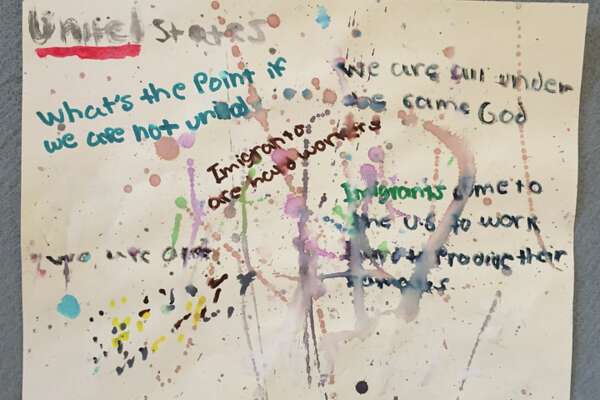 United States
What's the Point if
we are not united
we are all under
the same God
Imigrants
are hard workers
Imigrants come to
the U.S to work
hard to Provide their
families
we are one